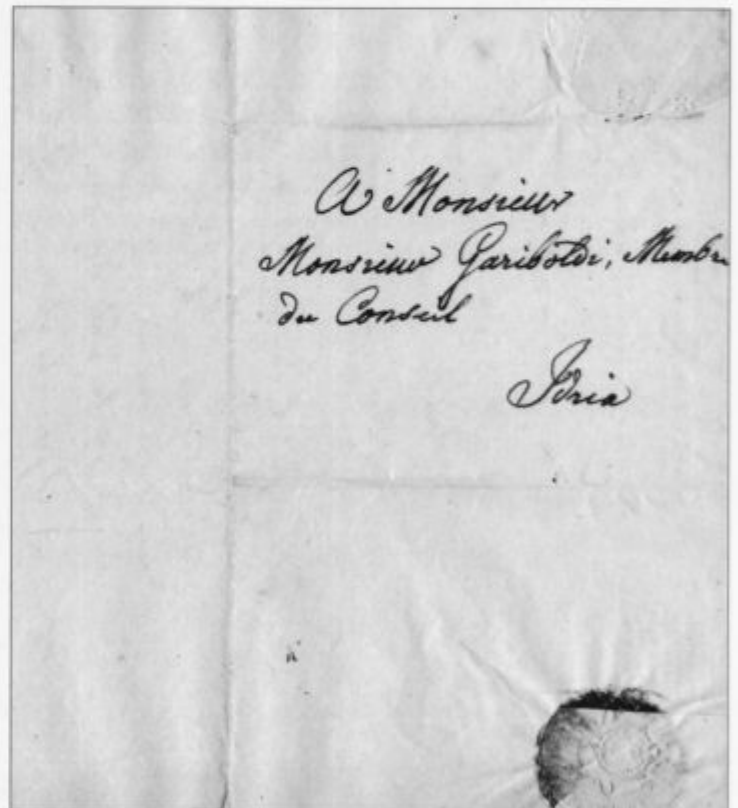 A Monsieur
Monsieur Gariboldi, Membre
du Conseil
Idria